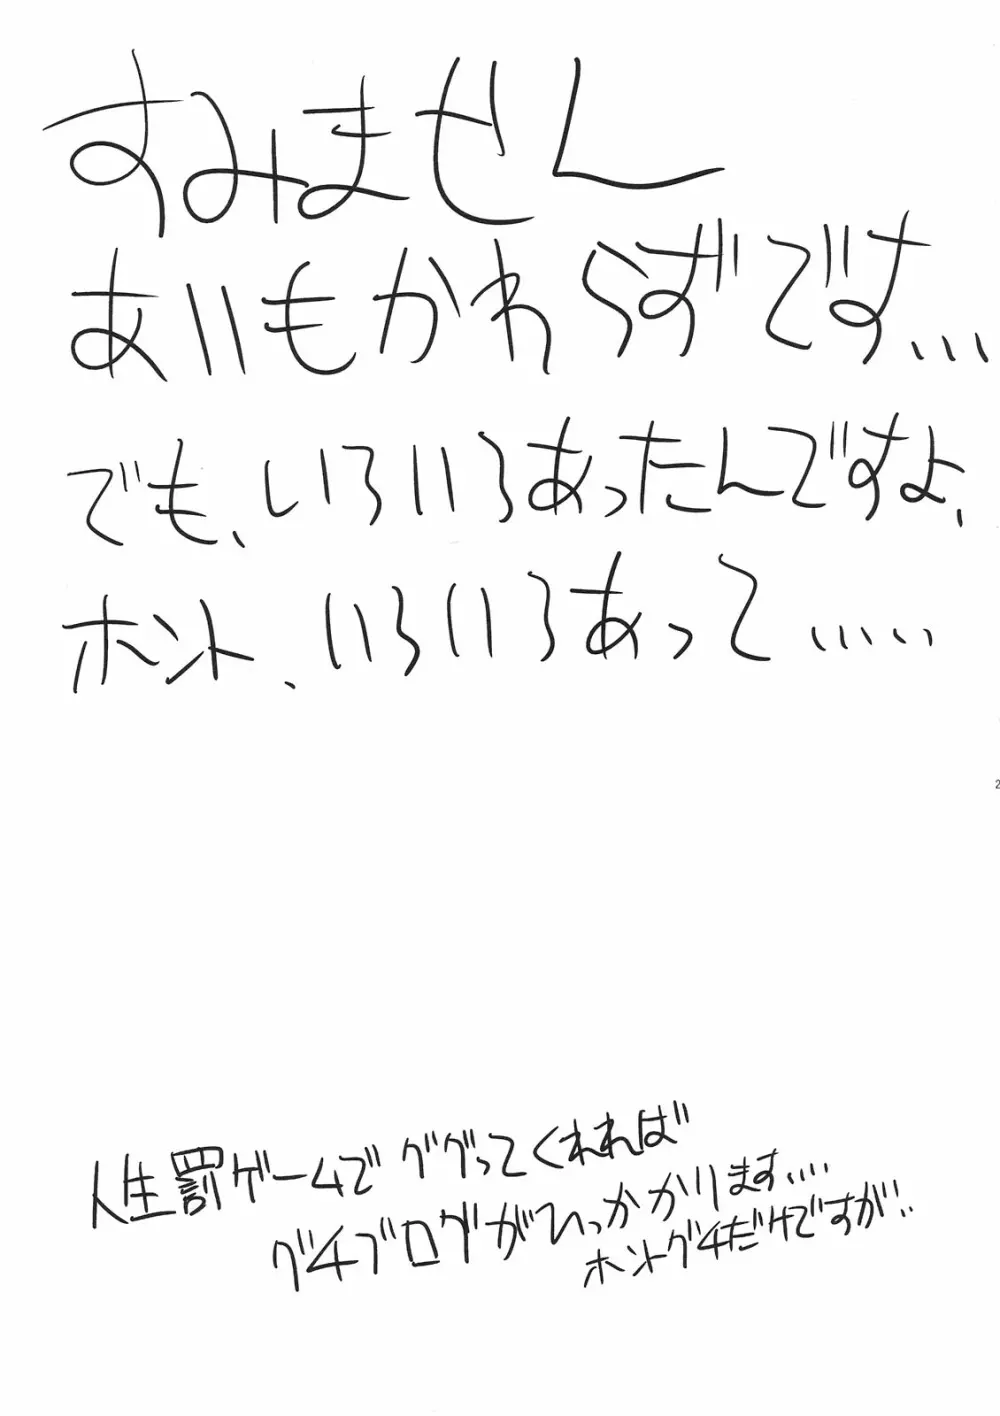 すみません
あいもかわらずです…
でも、いろいろあったんですよ、
ホント、いろいろあって……
2
人生罰ゲームでググってくれれば
グチブログがひっかかります…
ホントグチだけですが…